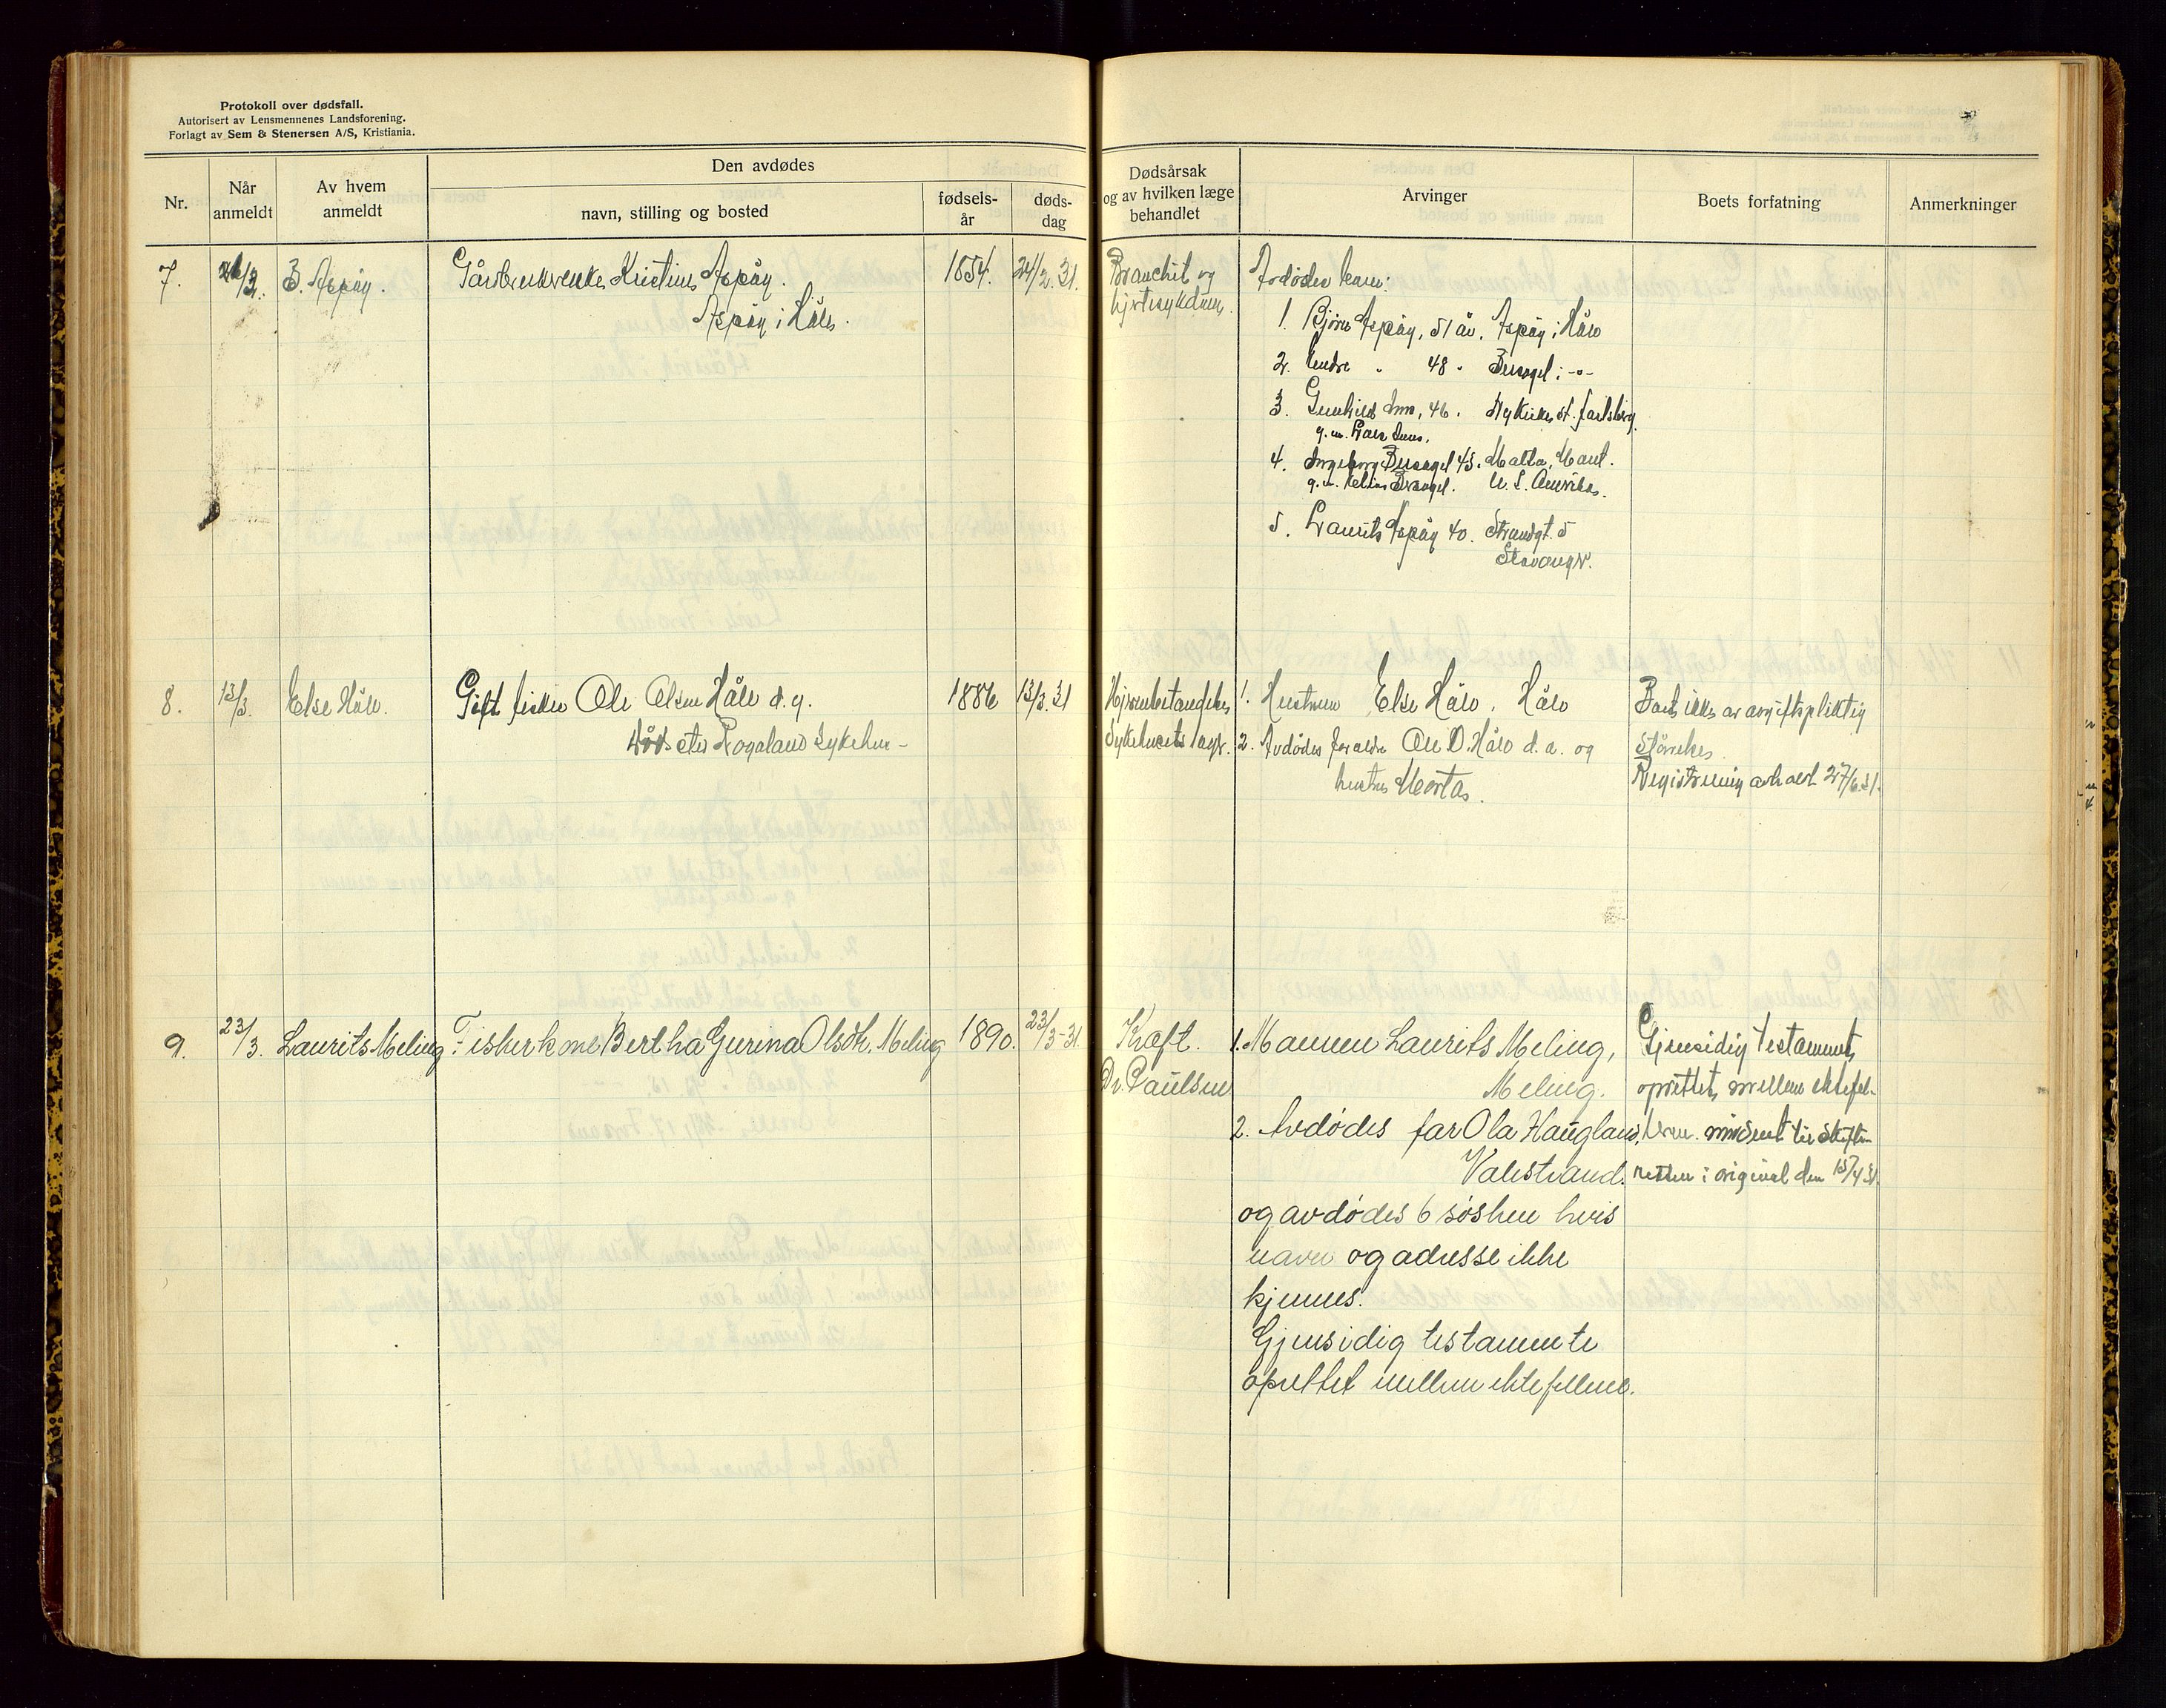 Protokoll over dødsfall.
Autorisert av Lensmennenes Landsforening.
Forlagt av Sem & Stenersen A/S, Kristiania.
Nr.
Når anmeldt
Av hvem anmeldt
Den avdødes
navn, stilling og bosted
fødsels-år
døds-dag
Dødsårsak og av hvilken læge behandlet
Arvinger
Boets forfatning
Anmerkninger
7. B. Aspøy. Gårdbrukerenke Kristine Aspøy. 1854. 24/2.31.
Aspøy i Håle.
Bronchit og
hjertesykdom.
Avdødes barn:
1. Bjørne Aspøy, 51 år, Aspøy i Håle
2. Endre " 48 "
3. Gunhild 46.
g.m. Lars
4. Ingeborg 43. Malta, Mont.
g.m. U. S. Amerika.
5. Laurits Aspøy 40. Strandgt. 5
Stavanger.
8. 13/3. Else Håle. Gift fisker Ole Olsen Håle d.y. 1886 13/3.31
Rogaland sykehus
Hjernebetændelse
Sykehusets læge.
1. Hustruen Else Håle, Håle
2. Avdødes foreldre Ole O. Håle d.e. og
hustru Marta.
Boet ikke av avgiftspliktig
størrelse.
Registrering avholdt 27/6.31.
9. 23/3. Laurits Meling Fiskerkone Bertha Gurina Olsdtr. Meling 1890. 23/3-31
Kræft.
Dr. Paulsen
1. Mannen Laurits Meling,
Meling.
2. Avdødes far Ola Haugland,
Valestrand.
og avdødes 6 søsken hvis
navn og adresse ikke
kjennes.
Gjensidig testamente
oprettet mellem ektefellene.
Gjensidig testament,
oprettet mellem ektefel-
lene. innsendt til skifte-
retten i original den 15/4 31.